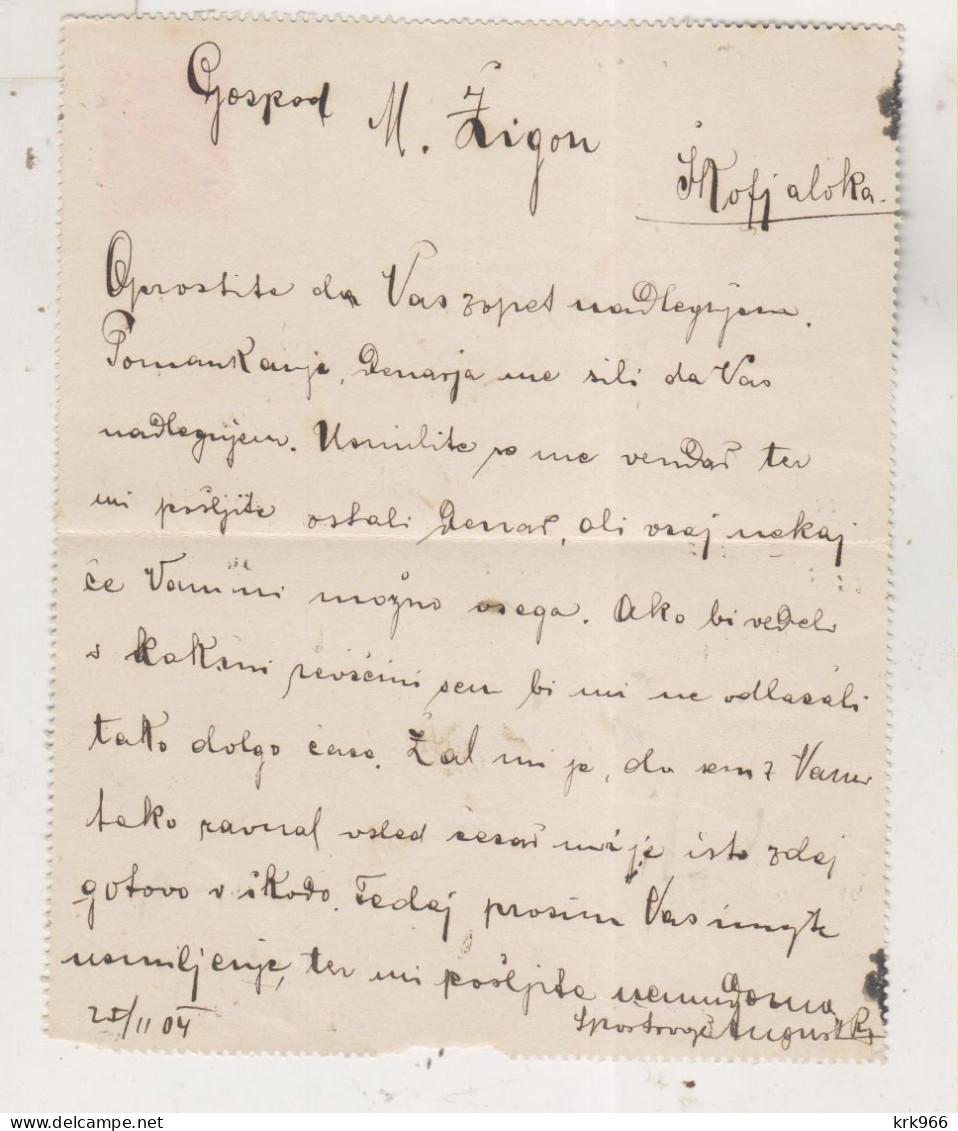 Gospod
M. Žigon
Škofjaloka.
Oprostite da Vas zopet nadlegujem.
Pomankanje, denarja me sili da Vas
nadlegujem. Usmilite se me vendar ter
mi pošljite ostali denar, ali vsaj nekaj
če Vam ni možno vsega. Ako bi vedeli
v kakšni revščini sem bi mi ne odlašali
tako dolgo časa. Žal mi je, da sem z Vami
tako ravnal vsled česar mi je isto zdaj
gotovo v škodo. Tedaj prosim Vas imejte
usmiljenje, ter mi pošljite nemudoma
25/11 04
Spoštovanjem August
krk966